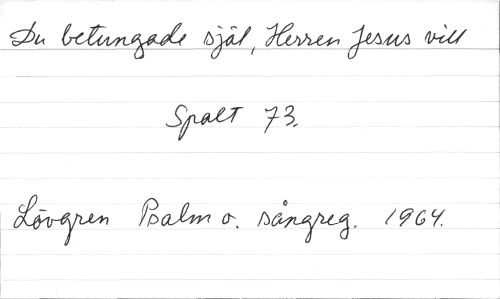 Du betungade själ, Herren Jesus vill
Spalt 73.
Lövgren Psalm o. sångreg. 1964.